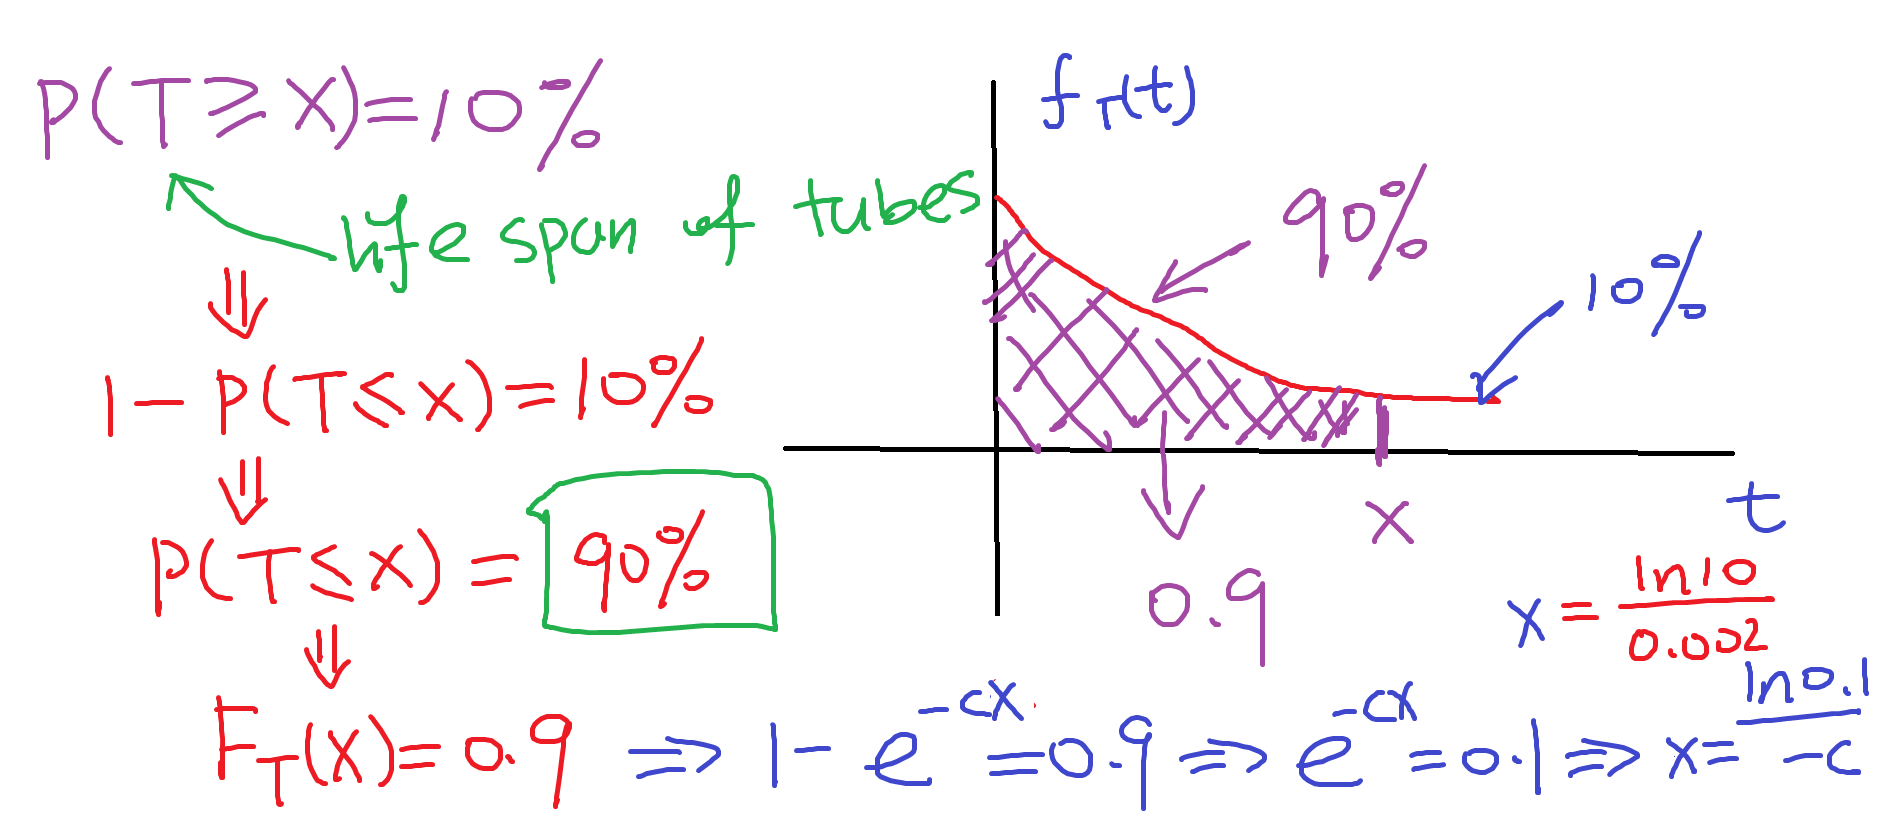 P(T ≥ x) = 10%
life span of tubes
⇓
1 - P(T ≤ x) = 10%
⇓
P(T ≤ x) = 90%
⇓
F_T(x) = 0.9 ⇒ 1 - e^{-cx} = 0.9 ⇒ e^{-cx} = 0.1 ⇒ x = \frac{ln0.1}{-c}
f_T(t)
90%
10%
x
t
0.9
x = \frac{ln10}{0.002}